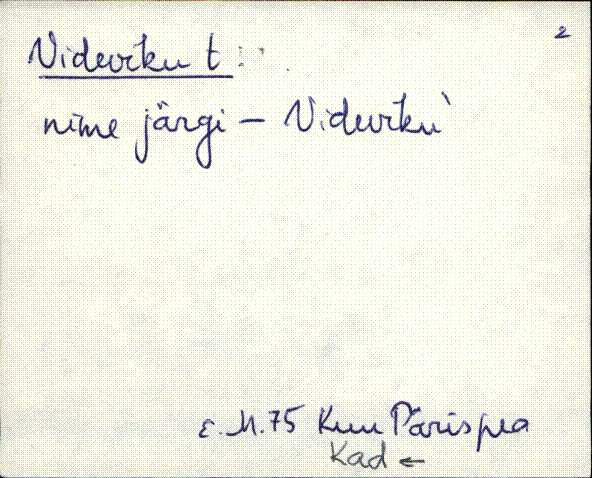 2
Videviku t
nime järgi – Videviku
E. M. 75 Kuu Pärispea
Kad ←